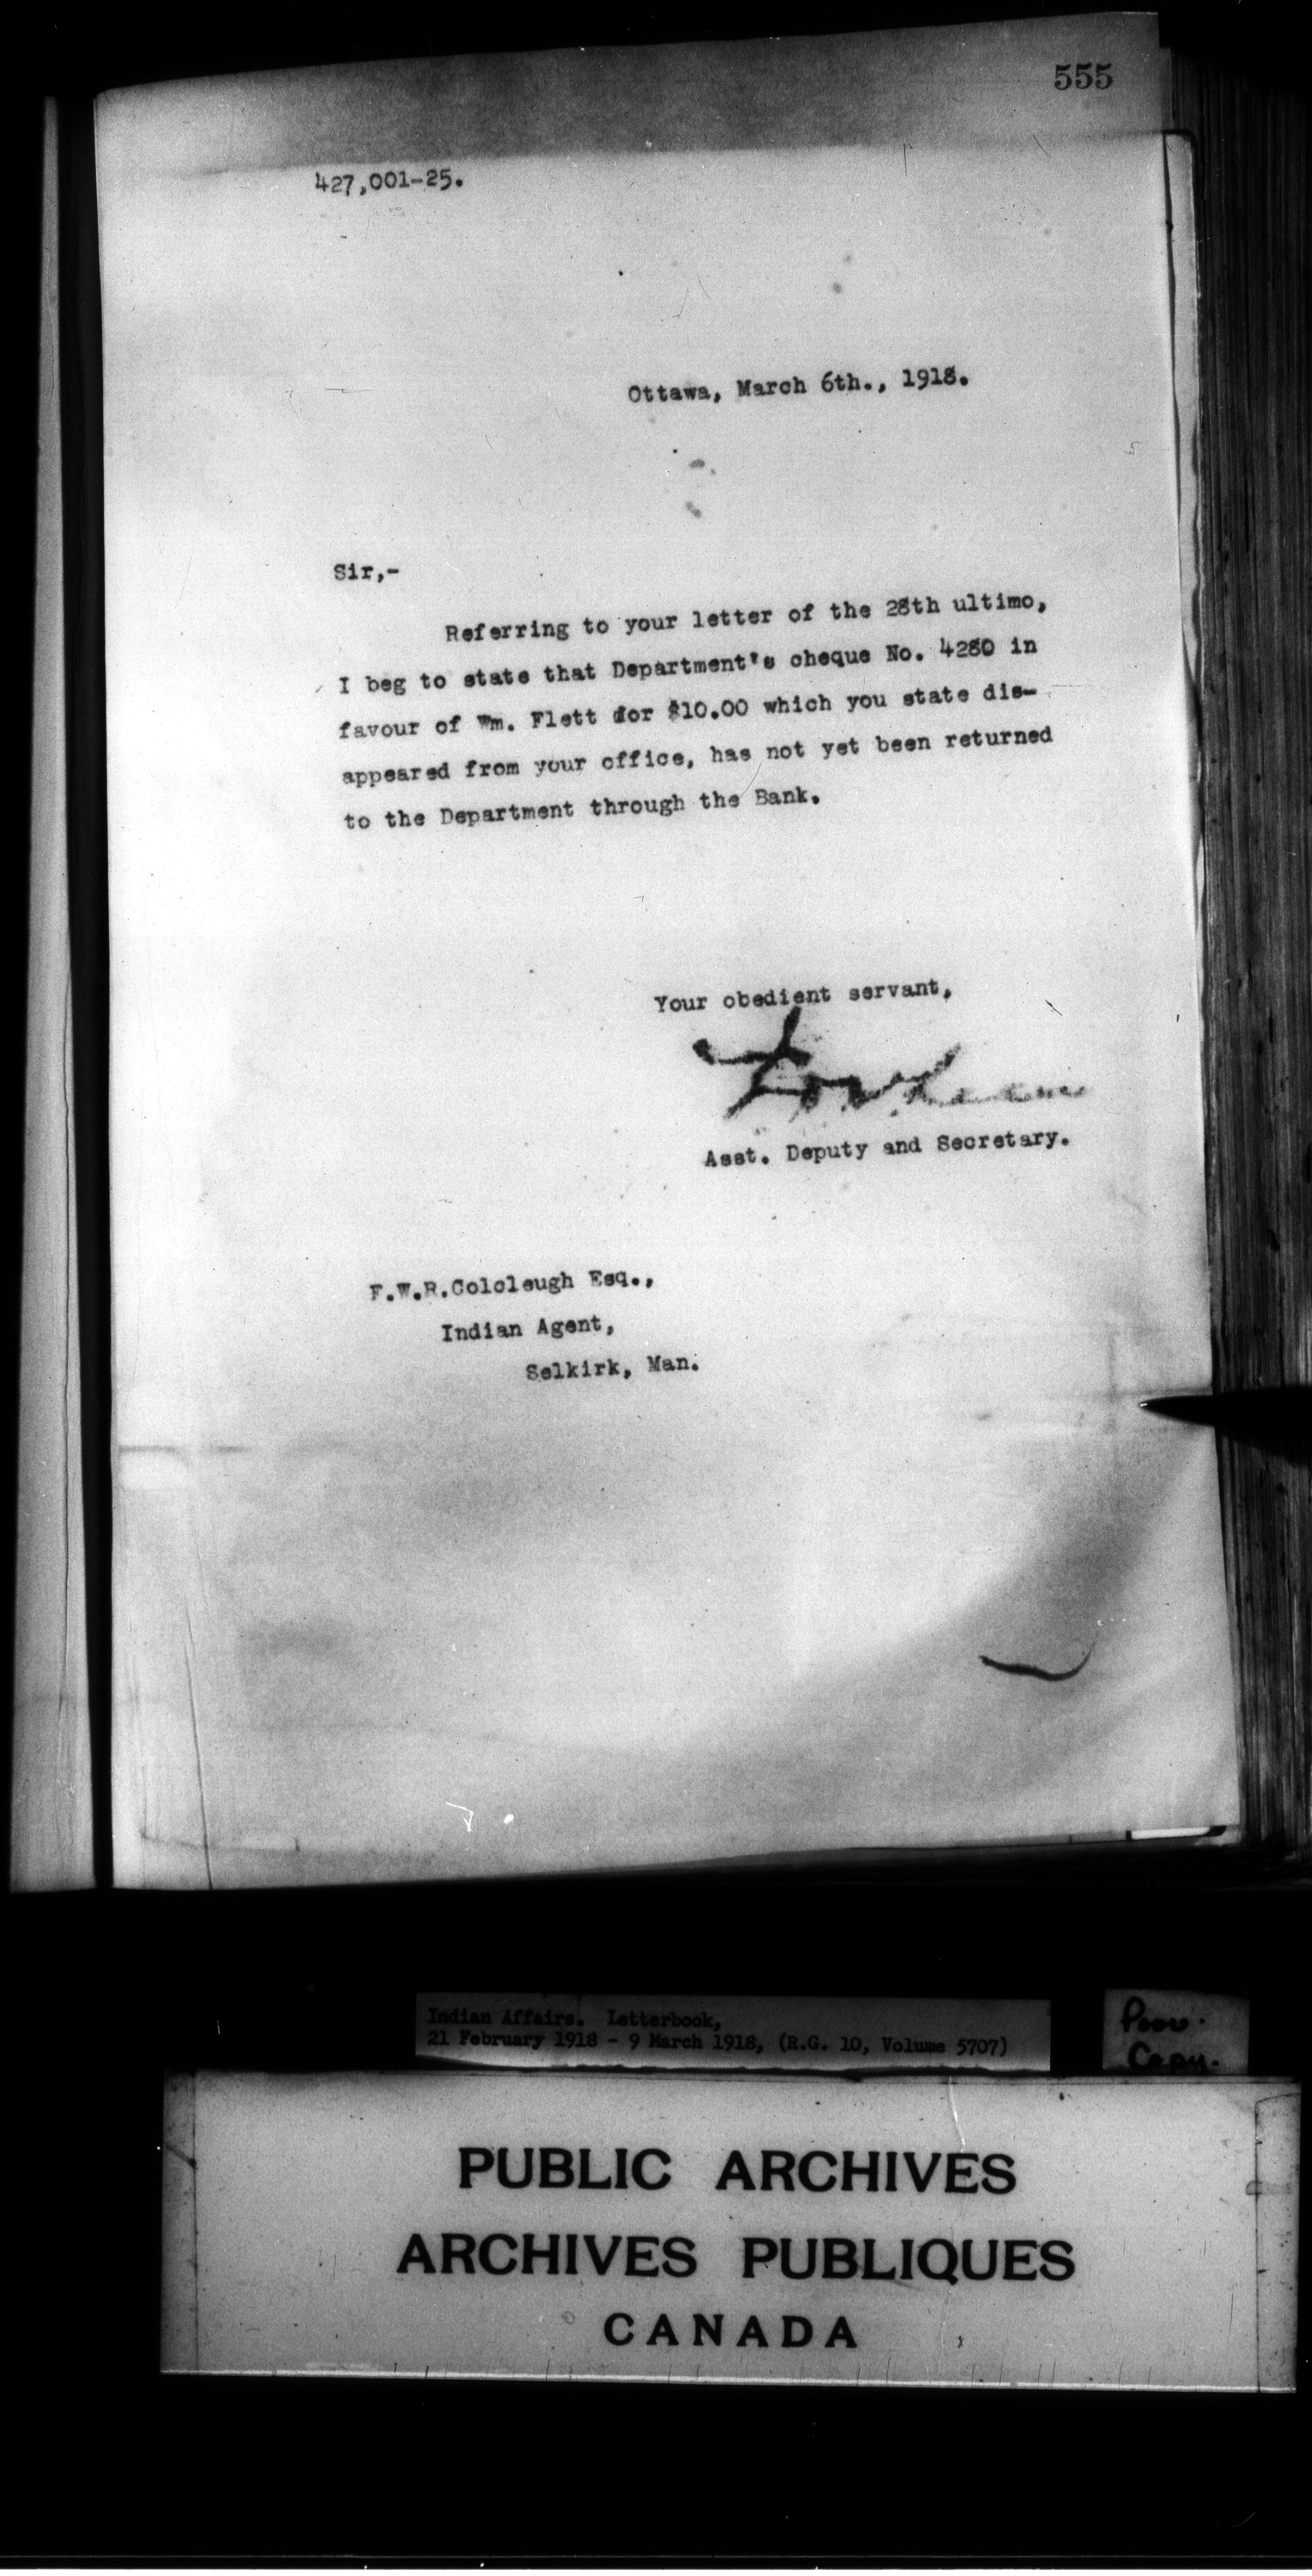 555
427,001-25.
Ottawa, March 6th., 1918.
Sir,-
Referring to your letter of the 28th ultimo,
I beg to state that Department's cheque No. 4280 in
favour of Wm. Flett for $10.00 which you state dis-
appeared from your office, has not yet been returned
to the Department through the Bank.
Your obedient servant,
Asst. Deputy and Secretary.
F.W.R.Colcleugh Esq.,
Indian Agent,
Selkirk, Man.
Indian Affairs. Letterbook,
21 February 1918 - 9 March 1918, (R.G. 10, Volume 5707)
Poor
Copy.
PUBLIC ARCHIVES
ARCHIVES PUBLIQUES
CANADA